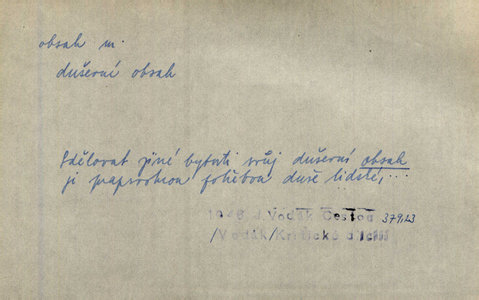 obsah m.
duševní obsah
Sdělovat jiné bytosti svůj duševní obsah
je naprostou potřebou duše lidské, ...
1946 J. Vodák Cestou 379,23
/Vodák/Kritické